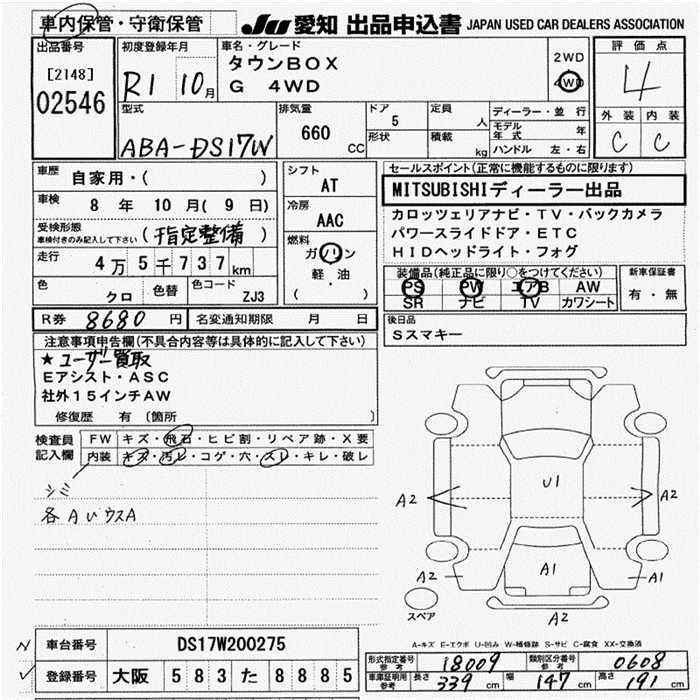 車内保管・守衛保管
JU 愛知 出品申込書 JAPAN USED CAR DEALERS ASSOCIATION
出品番号
[2148]
02546
初度登録年月
R1 10月
車名・グレード
タウンBOX
G 4WD
2WD
4WD
評価点
4
外装 内装
C C
型式
ABA-DS17W
排気量
660 CC
ドア 5
形状
定員 人
積載 kg
ディーラー・並行
モデル年式 年
ハンドル 左・右
車歴 自家用・( )
車検 8年 10月(9日)
受検形態
車検付きのみ記入して下さい
(指定整備)
走行 4万5千737km
色 クロ
色替
色コード ZJ3
シフト
AT
冷房
AAC
燃料
ガソリン
軽・油
( )
セールスポイント(正常に機能するものに限ります)
MITSUBISHIディーラー出品
カロッツェリアナビ・TV・バックカメラ
パワースライドドア・ETC
HIDヘッドライト・フォグ
装備品(純正品に限り○をつけてください)
PS PW エアB AW
SR ナビ TV カワシート
新車保証書
有・無
R券 8680円
名変通知期限 月 日
後日品
Sスマキー
注意事項申告欄(不具合内容等は具体的に記入して下さい)
★ユーザー買取
Eアシスト・ASC
社外15インチAW
修復歴 有 〔箇所 〕
検査員
記入欄
FW キズ・飛石・ヒビ割・リペア跡・X要
内装 キズ・汚レ・コゲ・穴・スレ・キレ・破レ
シミ
各AUウスA
U1
A2
A2
A1
A2
A1
A2
スペア
A-キズ E-エクボ U-凹み W-補修跡 S-サビ C-腐食 XX-交換済
車台番号 DS17W200275
登録番号 大阪 583 た 8885
形式指定番号
参考
18009
類別区分番号
参考
0608
車庫証明用
参考
長さ 339 cm
幅 147 cm
高さ 191 cm